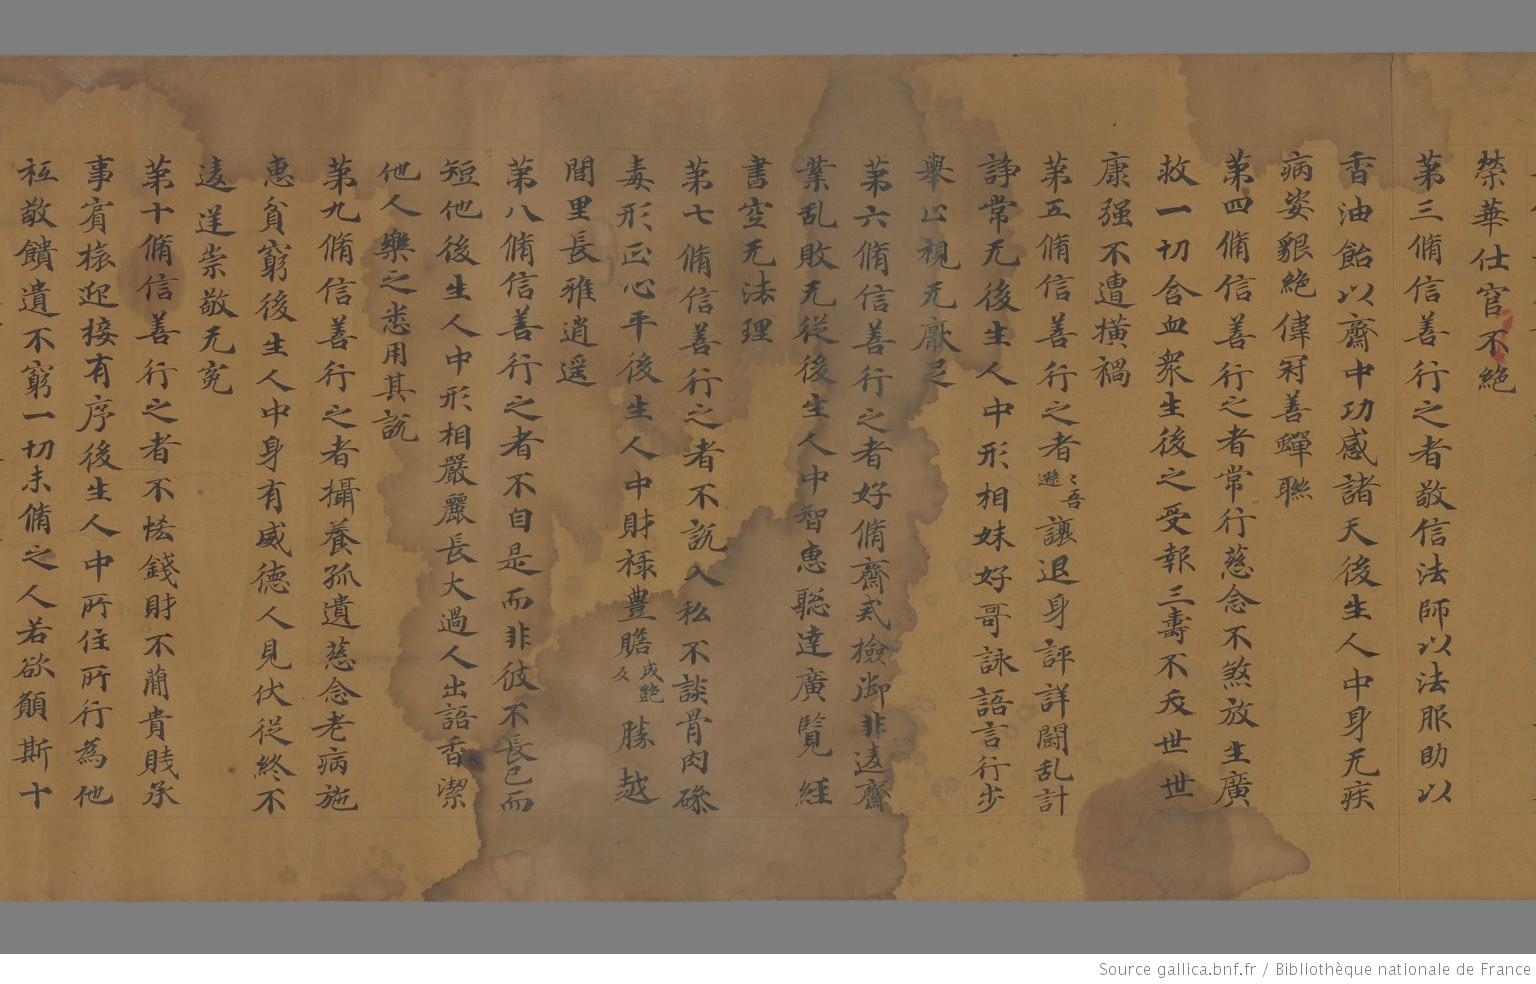 榮華仕官不絶
第三脩信善行之者敬信法師以法服助以
香油飴以齋中功感諸天後生人中身无疾
病姿貌絶偉冠善蟬聯
第四脩信善行之者常行慈念不煞放生廣
救一切含血衆生後之受報三壽不夭世世
康强不遭橫禍
第五脩信善行之者遜吾讓退身評詳鬪乱計
諍常无後生人中形相姝好哥詠語言行步
舉止視无厭足
第六脩信善行之者好脩齋戒檢御非逺齋
業乱敗无從後生人中智惠聡達廣覽經
書空无法理
第七脩信善行之者不説入私不談骨肉礫
毒形正心平後生人中財禄豊贍戍艶反勝越
閭里長雅逍遥
第八脩信善行之者不自是而非彼不長己而
短他後生人中形相嚴麗長大過人出語香潔
他人樂之悉用其説
第九脩信善行之者攝養孤遺慈念老病施
惠貧窮後生人中身有威德人見伏從終不
逺送崇敬无寃
第十脩信善行之者不恡錢財不簡貴賎承
事賓旅迎接有序後生人中所住所行為他
祗敬饋遺不窮一切未脩之人若欲願斯十
Source gallica.bnf.fr / Bibliothèque nationale de France